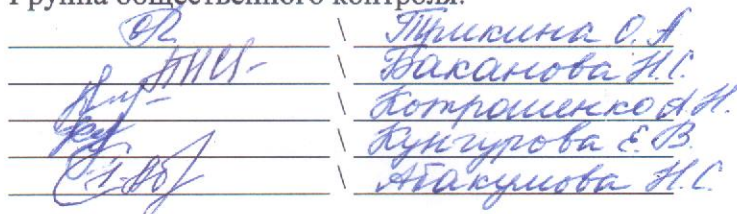 Группа общественного контроля:
\ Тушкина О. А
\ Баканова Н.С.
\ Котрошенко А.Н.
\ Кунгурова Е.В.
\ Абакумова Н.С.